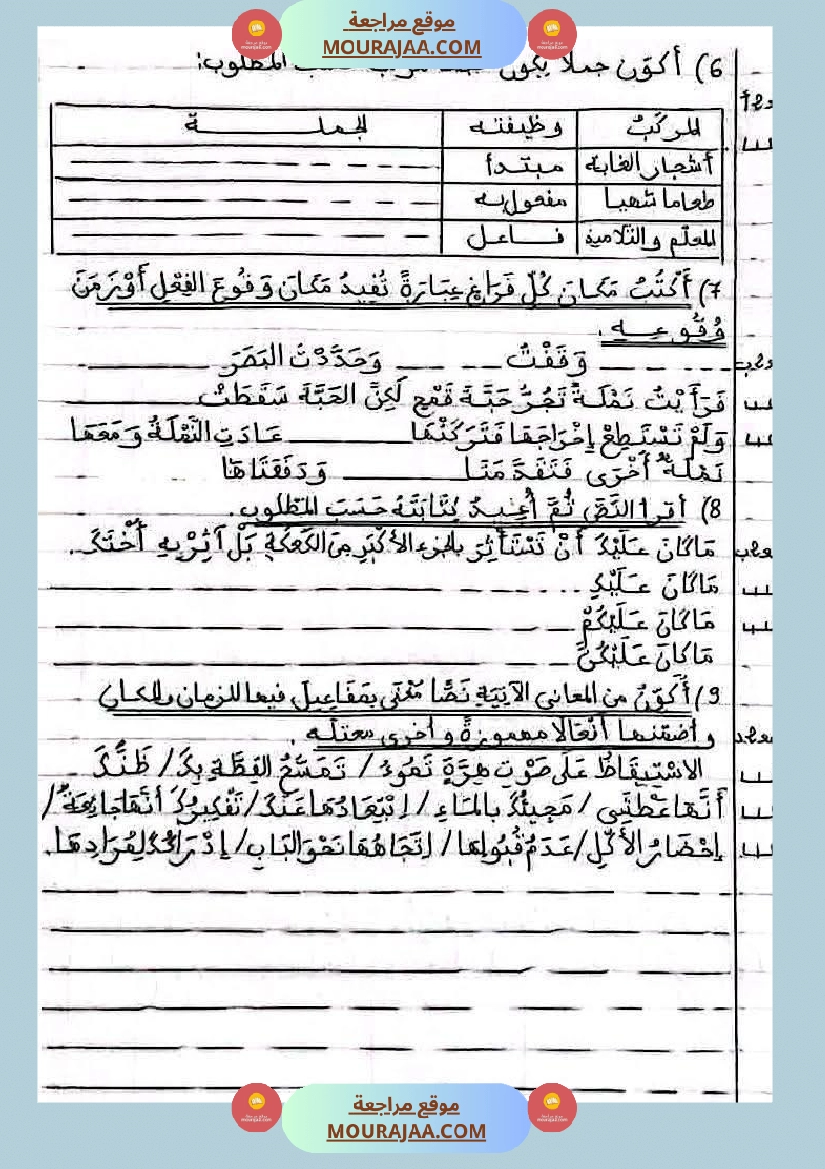 موقع مراجعة
MOURAJAA.COM
6) أكوّن جملا يكون
المركّبُ وظيفته الجملة
أشجار الغابة مبتدأ
طعاما شهيا مفعول به
المعلّم والتلاميذ فاعل
7) أَكْتُبُ مَكَانَ كُلِّ فَرَاغٍ عِبَارَةً تُفِيدُ مَكَانَ وَقُوعَ الفِعْلِ أَوْ زَمَنَ
وُقُوعِهِ.
وَقَفْتُ وَحَدَّدْتُ البَصَرَ
فَرَأَيْتُ نَمْلَةً تَجُرُّ حَبَّةَ قَمْحٍ لَكِنَّ الحَبَّةَ سَقَطَتْ
وَلَمْ تَسْتَطِعْ إِخْرَاجَهَا فَتَرَكَتْهَا عَادَتِ النَّمْلَةُ وَمَعَهَا
نَمْلَةٌ أُخْرَى فَتَقَدَّمَتَا وَدَفَعَتَاهَا
8) أقرأ النَّصَّ ثُمَّ أُعِيدُ كِتَابَتَهُ حَسَبَ المَطْلُوبِ.
مَا كَانَ عَلَيْكَ أَنْ تَسْتَأْثِرَ بالجزء الأَكْبَرِ مِنَ الكَعْكَةِ بَلْ آثِرْ بِهِ أُخْتَكَ.
مَا كَانَ عَلَيْكِ
مَا كَانَ عَلَيْكُمْ
مَا كَانَ عَلَيْكُنَّ
9) أُكَوِّنُ من المعاني الآتِيَةِ نَصًّا مُغْنًى بِمَفَاعِيلَ فيها للزمان والمكان
وأضمّنها أفْعَالا مهموزةً وأخرى معتلّة.
الاسْتِيقَاظُ عَلَى صَوْتِ هِرَّةٍ تَمُوءُ / تَمَسُّحُ القِطَّةِ بِكَ / ظَنُّكَ
أَنَّهَا عَطْشَى / مَجِيئُكَ بِالمَاءِ / اِبْتِعَادُهَا عَنْكَ / تَفْكِيرُكَ أَنَّهَا جَائِعَةٌ /
إِحْضَارُ الأَكْلِ / عَدَمُ قُبُولِهَا / اتِّجَاهُهَا نَحْوَ البَابِ / إِدْرَاكُكَ لِمُرَادِهَا.
موقع مراجعة
MOURAJAA.COM